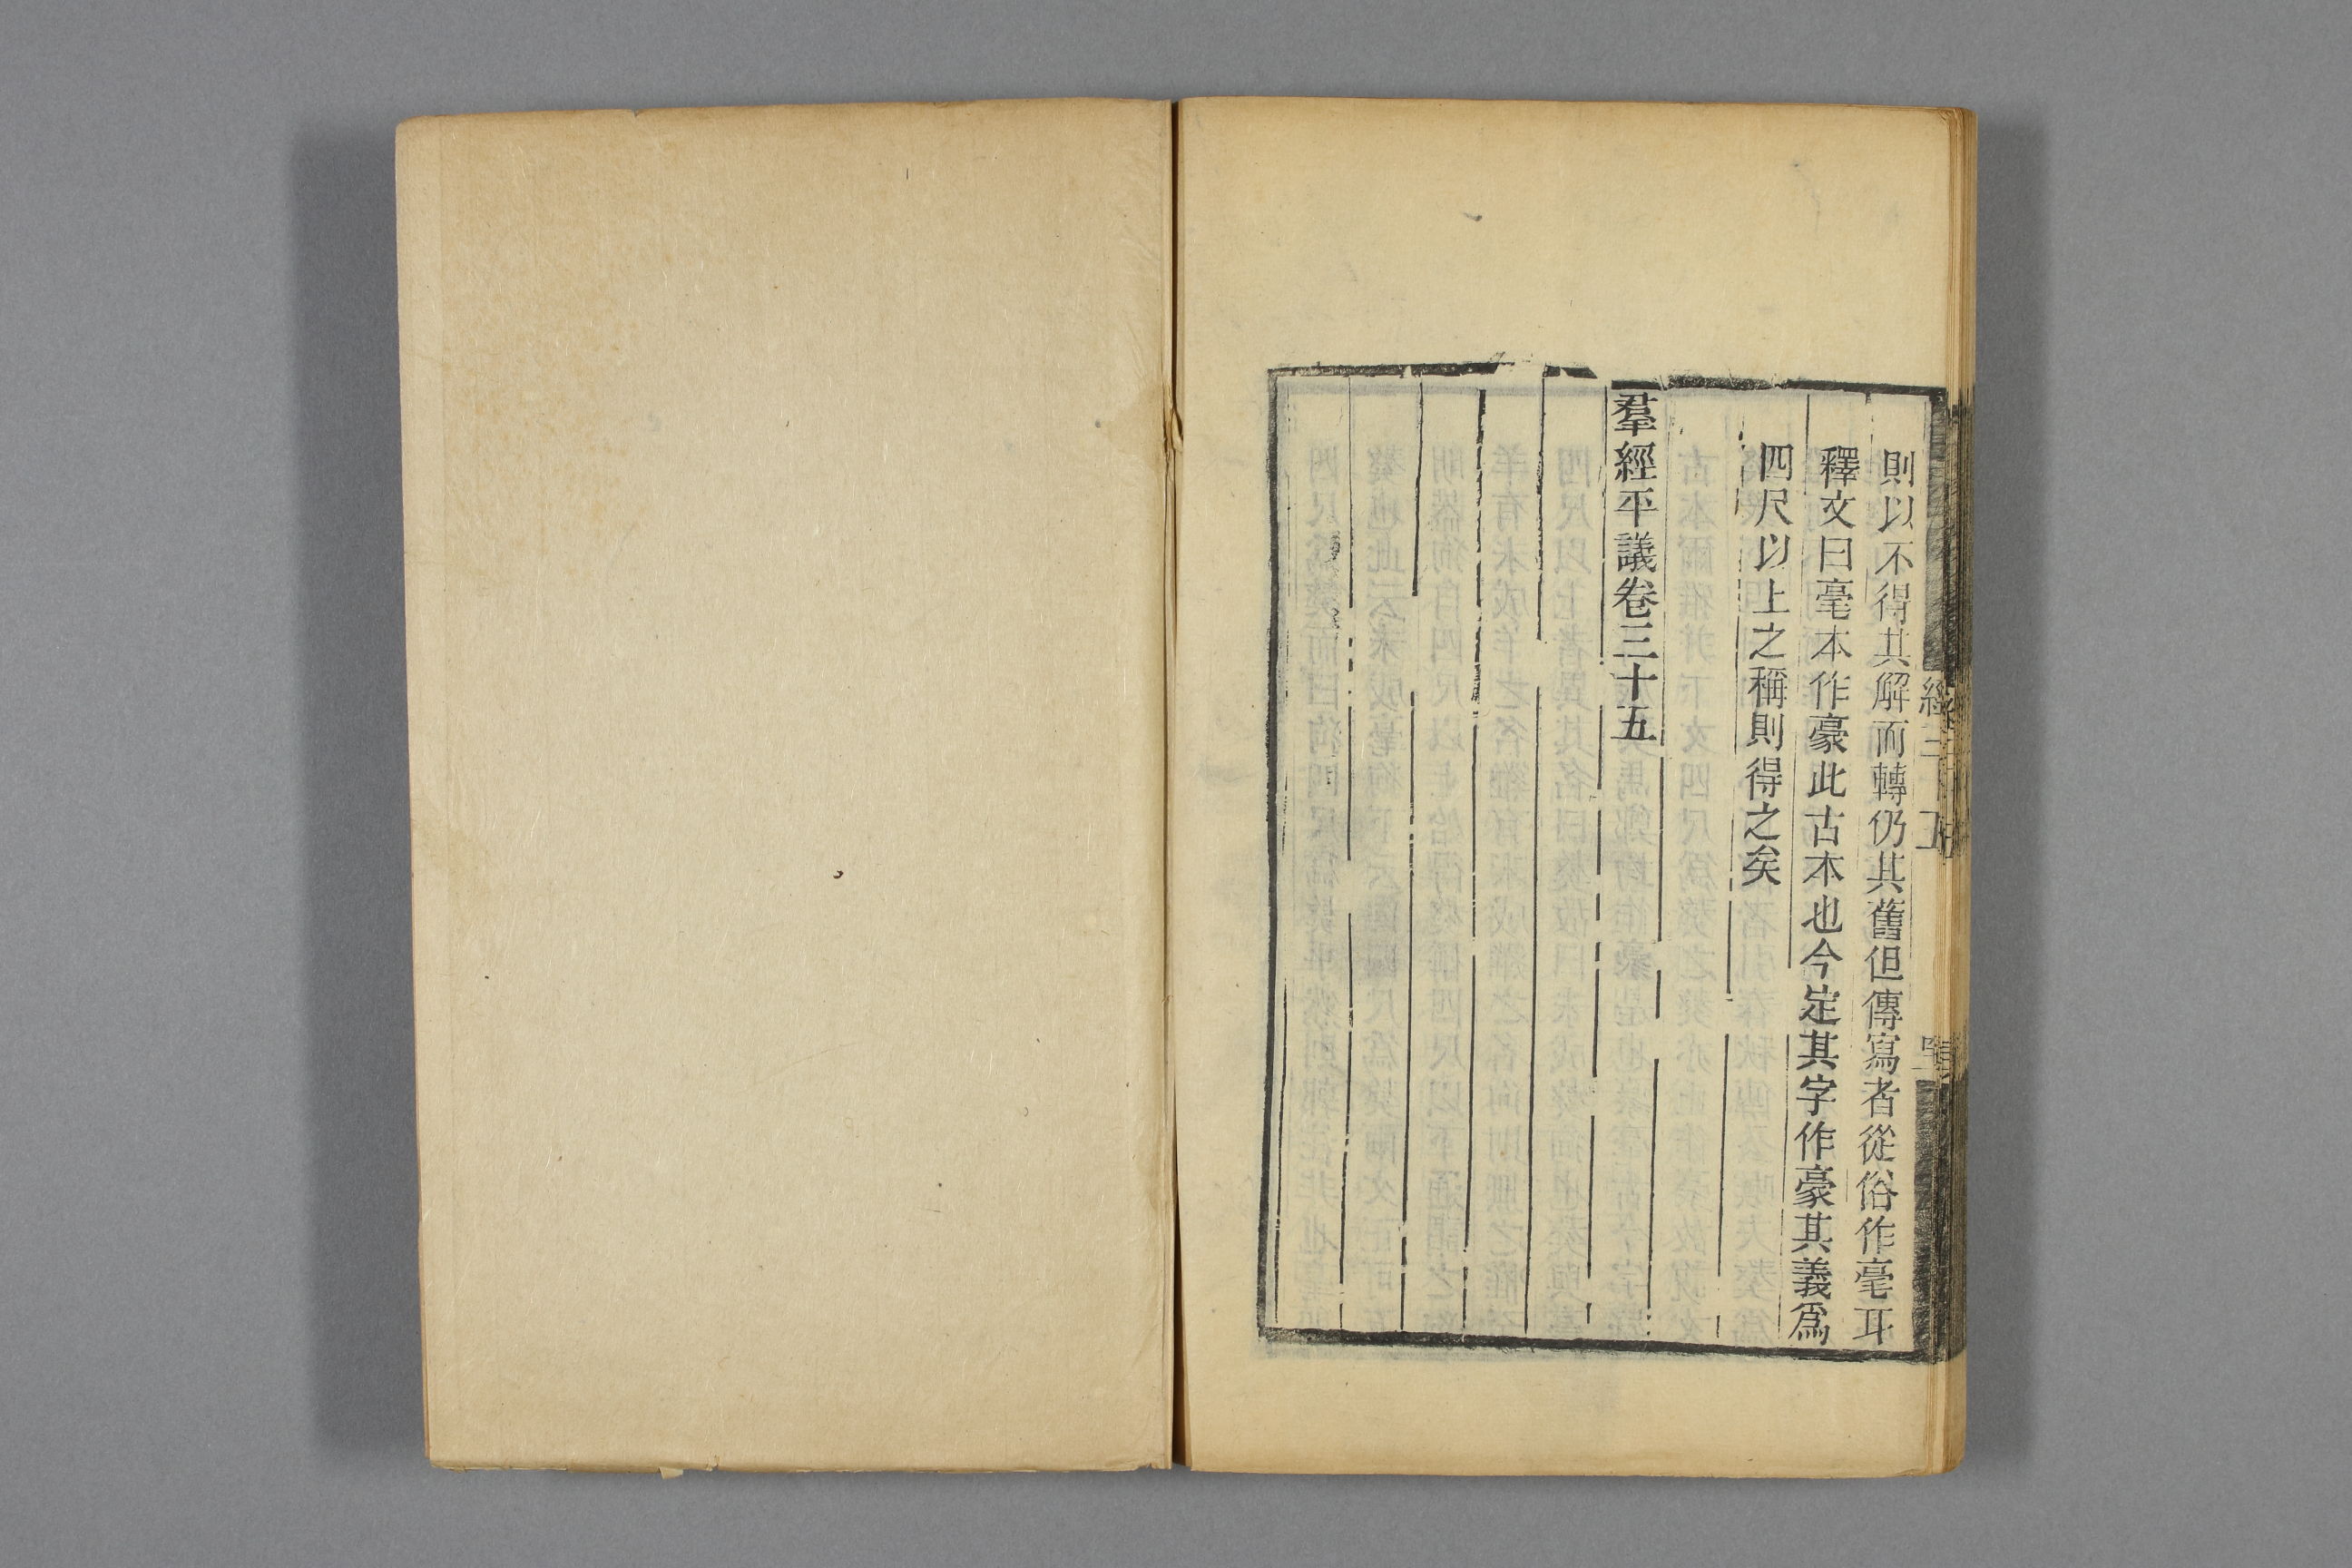 則以不得其解而轉仍其舊但傳寫者從俗作毫耳
釋文曰毫本作豪此古本也今定其字作豪其義爲
四尺以上之稱則得之矣
羣經平議卷三十五
經三十五